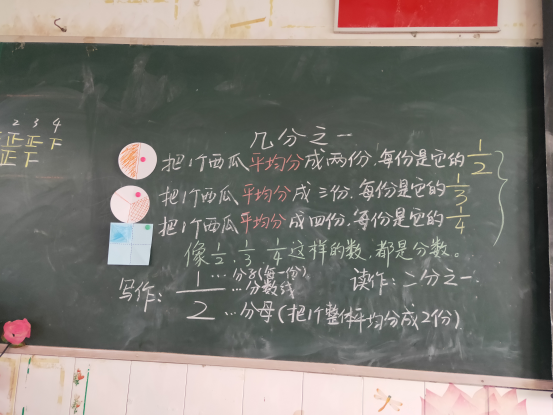 2 3 4
正 正 下
正 下
几分之一
把1个西瓜平均分成两份,每份是它的1/2
把1个西瓜平均分成三份,每份是它的1/3
把1个西瓜平均分成四份,每份是它的1/4
像1/2、1/3、1/4这样的数,都是分数。
写作: 1 …分子(每一份) 读作:二分之一
…分数线
2 …分母(把1个整体平均分成2份)